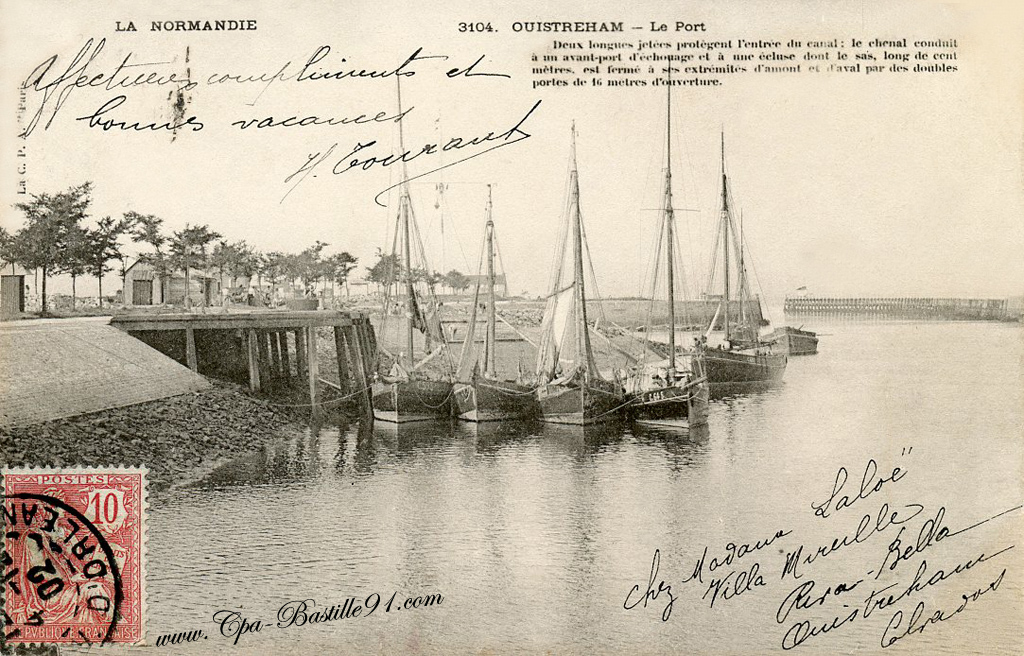 LA NORMANDIE
3104. OUISTREHAM — Le Port
Deux longues jetées protègent l'entrée du canal; le chenal conduit
à un avant-port d'échouage et à une écluse dont le sas, long de cent
mètres, est fermé à ses extrémités d'amont et d'aval par des doubles
portes de 16 mètres d'ouverture.
Affectueux compliments et
bonnes vacances
H. Tourant
La C. P. A.
POSTES
10
02
D'ORLEAN
REPUBLIQUE FRANÇAISE
chez Madame Laloë
Villa Mireille
Riva-Bella
Ouistreham
Calvados
www.Cpa-Bastille91.com